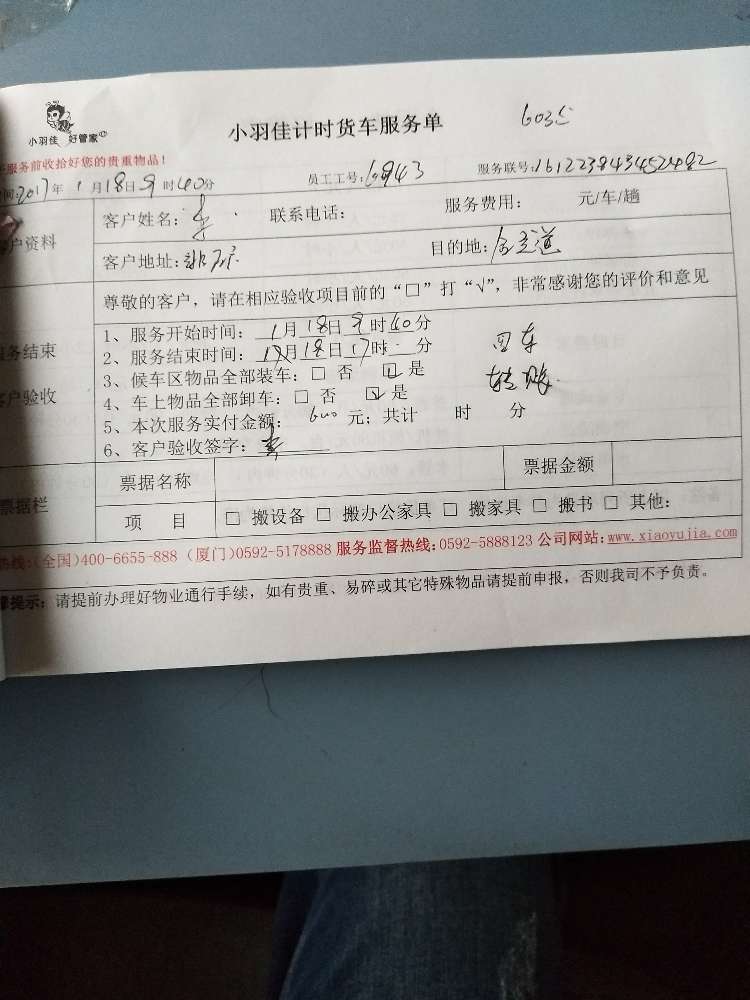 小羽佳 好管家
小羽佳计时货车服务单
603
服务前收拾好您的贵重物品！
间:2017年1月18日9时40分 员工工号:6943 服务联号:161223843452482
客户姓名:李 联系电话: 服务费用: 元/车/趟
户资料
客户地址: 目的地:
尊敬的客户，请在相应验收项目前的“□”打“√”，非常感谢您的评价和意见
1、服务开始时间: 1月18日9时40分 四车
服务结束
2、服务结束时间: 1月18日17时 分
3、候车区物品全部装车:□ 否 ☑是 转账
户验收
4、车上物品全部卸车:□ 否 ☑是
5、本次服务实付金额: 600 元; 共计 时 分
6、客户验收签字: 李
票据名称 票据金额
票据栏
项 目 □ 搬设备 □ 搬办公家具 □ 搬家具 □ 搬书 □ 其他:
热线:(全国)400-6655-888 (厦门)0592-5178888 服务监督热线:0592-5888123 公司网站:www.xiaoyujia.com
提示: 请提前办理好物业通行手续，如有贵重、易碎或其它特殊物品请提前申报，否则我司不予负责。